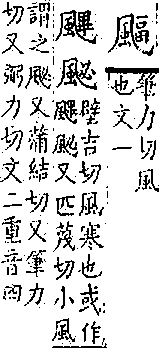 筆力切風
也文一
壁吉切風寒也或作
又匹蔑切小風
謂之 又蒲結切又筆力
切又弼力切文二重音四